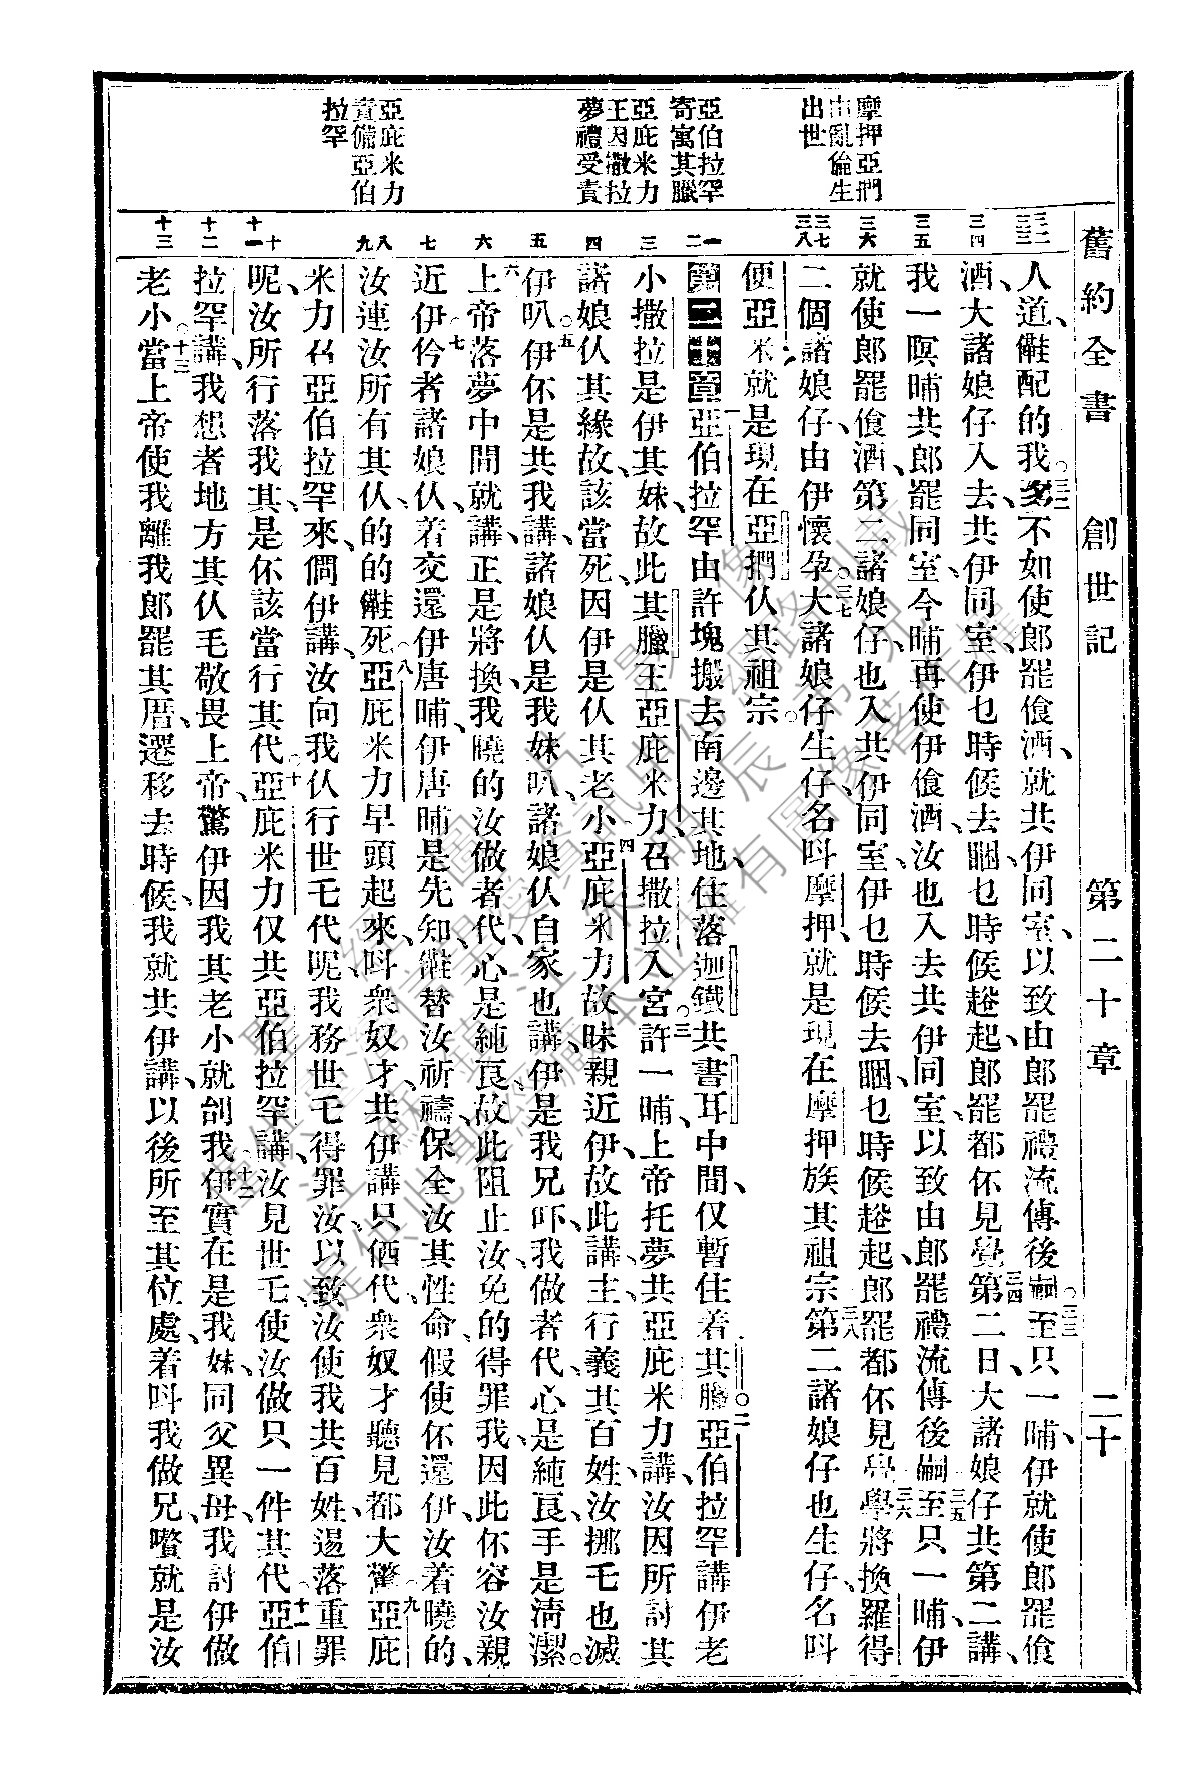 舊約全書 創世記 第二十章 二十
摩押亞捫
由亂倫生
出世
亞伯拉罕
寄寓其臘
亞庇米力
王因撒拉
夢禮受責
亞庇米力
責備亞伯
拉罕
人道、㑚配的我。三二多不如使郎罷飲酒、就共伊同室、以致由郎罷禮流傳後嗣。三三至只一晡、伊就使郎罷飲
酒、大諸娘仔入去共伊同室、伊乜時候去睏、乜時候趖起、郎罷都伓見覺。三四第二日大諸娘仔共第二講、
我一暝晡共郎罷同室、今晡再使伊飲酒、汝也入去共伊同室、以致由郎罷禮流傳後嗣。三五至只一晡伊
就使郎罷飲酒、第二諸娘仔、也入共伊同室、伊乜時候去睏、乜時候趖起、郎罷都伓見覺。三六將換羅得
二個諸娘仔、由伊懷孕。三七大諸娘仔生仔、名呌摩押、就是現在摩押族其祖宗。三八第二諸娘仔也生仔、名呌
便亞米、就是現在亞捫仈其祖宗。
第二十章 一亞伯拉罕由許塊搬去南邊其地、住落迦鐵共書耳中間、仅暫住着其臘。二亞伯拉罕講伊老
小撒拉是伊其妹、故此其臘王亞庇米力、召撒拉入宮。三許一晡、上帝托夢共亞庇米力講、汝因所討其
諸娘仈其緣故、該當死、因伊是仈其老小。四亞庇米力故昧親近伊、故此講、主、行義其百姓、汝挪乇也滅
伊叭。五伊伓是共我講、諸娘仈是我妹叭、諸娘仈自家也講、伊是我兄吓、我做者代、心是純良、手是清潔。
六上帝落夢中間就講、正是將換、我曉的汝做者代、心是純良、故此阻止汝、免的得罪我、因此伓容汝親
近伊。七伱者諸娘仈、着交還伊唐晡、伊唐晡是先知、㑚替汝祈禱、保全汝其性命、假使伓還伊、汝着曉的、
汝連汝所有其仈、的的㑚死。八亞庇米力早頭起來、呌衆奴才、共伊講只価代、衆奴才聽見、都大驚。九亞庇
米力召亞伯拉罕來、倜伊講、汝向我仈行世乇代呢、我務世乇得罪汝、以致汝使我共百姓、逿落重罪
呢、汝所行落我其、是伓該當行其代。十亞庇米力仅共亞伯拉罕講、汝見世乇、使汝做只一件其代。十一亞伯
拉罕講、我想者地方其仈、毛敬畏上帝、驚伊因我其老小就刣我。十二伊實在是我妹、同父異母、我討伊做
老小。十三當上帝使我離我郎罷其厝、遷移去時候、我就共伊講、以後所至其位處、着呌我做兄、嚽就是汝